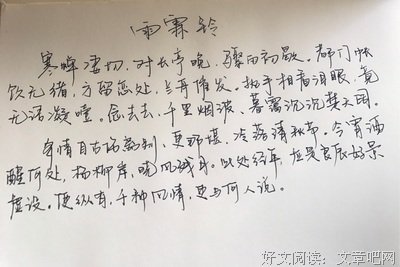 雨霖铃
寒蝉凄切，对长亭晚，骤雨初歇。都门帐
饮无绪，方留恋处，兰舟催发。执手相看泪眼，竟
无语凝噎。念去去，千里烟波，暮霭沉沉楚天阔。
多情自古伤离别，更那堪，冷落清秋节。今宵酒
醒何处，杨柳岸，晓风残月。此处经年，应是良辰好景
虚设。便纵有，千种风情，更与何人说。
好文阅读：文章吧网